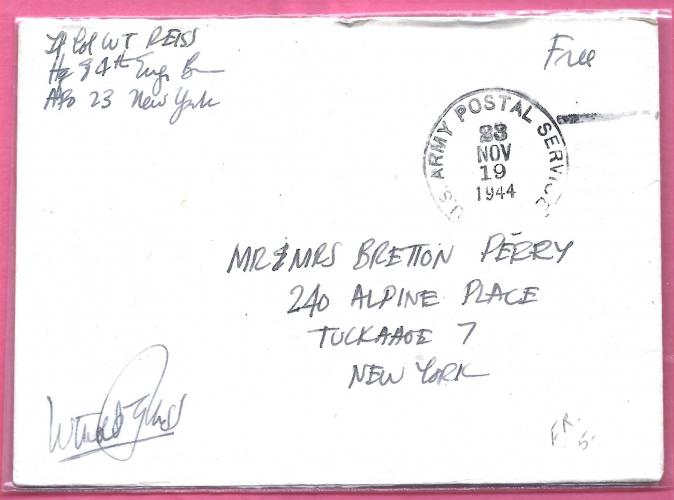 Lt Col WT REISS
Hq 84th Engr Bn
APO 23 New York
Free
U.S. ARMY POSTAL SERVICE
23
NOV
19
1944
MR & MRS BRETTON PERRY
240 ALPINE PLACE
TUCKAHOE 7
NEW YORK
F.R.
5-